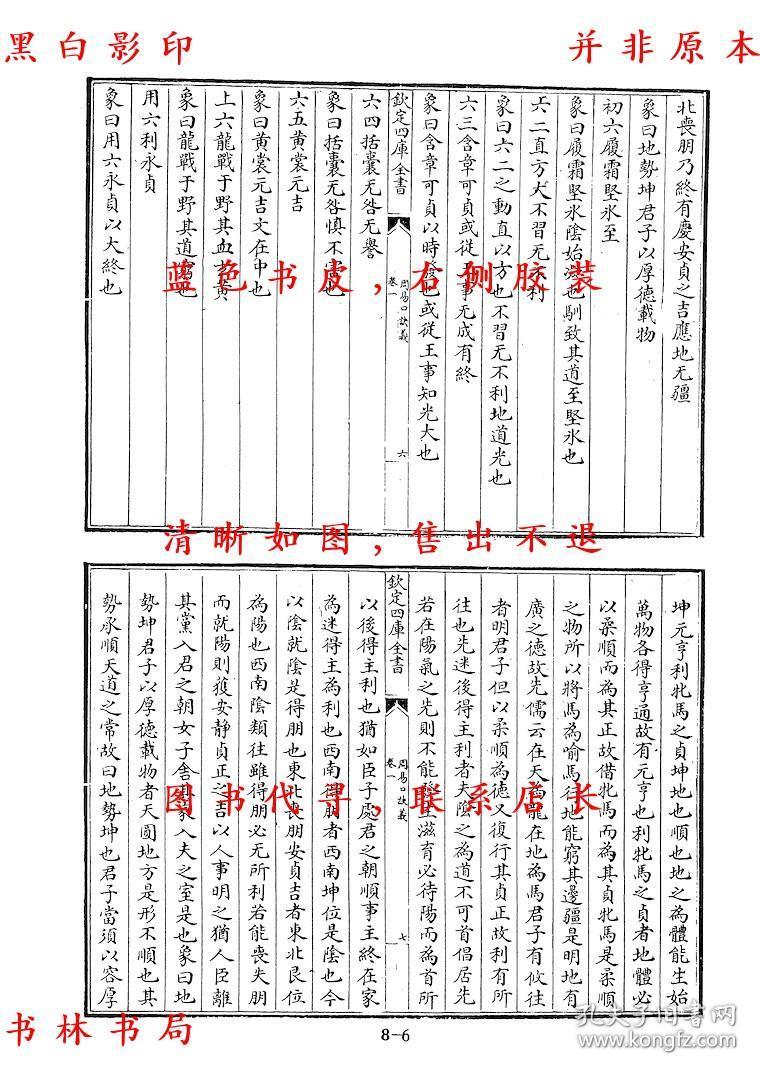 黑白影印
并非原本
北喪朋乃終有慶安貞之吉應地无疆
象曰地勢坤君子以厚德載物
初六履霜堅氷至
象曰履霜堅氷陰始也馴致其道至堅氷也
六二直方大不習无利
象曰六二之動直以方也不習无不利地道光也
六三含章可貞或從事无成有終
象曰含章可貞以時也或從王事知光大也
欽定四庫全書
周易口訣義
卷一
六
六四括囊无咎无譽
象曰括囊无咎慎不也
六五黄裳元吉
象曰黄裳元吉文在中也
上六龍戰于野其血黄
象曰龍戰于野其道也
用六利永貞
象曰用六永貞以大終也
蓝色书皮,右侧胶装
清晰如图,售出不退
坤元亨利牝馬之貞坤地也順也地之為體能生始
萬物各得亨通故有元亨也利牝馬之貞者地體必
以柔順而為其正故借牝馬而為其貞牝馬是柔順
之物所以將馬為喻馬往地能窮其邊疆是明地有
廣之德故先儒云在天龍在地為馬君子有攸往
者明君子但以柔順為德又復行其貞正故利有所
往也先迷後得主利者夫陰之為道不可首倡居先
若在陽氣之先則不能滋育必待陽而為首所
欽定四庫全書
周易口訣義
卷一
七
以後得主利也猶如臣子處君之朝順事主終在家
為迷得主為利也西南得朋者西南坤位是陰也今
以陰就陰是得朋也東北喪朋安貞吉者東北艮位
為陽也西南陰類往雖得朋必无所利若能喪失朋
而就陽則獲安静貞正之吉以人事明之猶人臣離
其黨入君之朝女子舍其家入夫之室是也象曰地
勢坤君子以厚德載物者天圓地方是形不順也其
勢承順天道之常故曰地勢坤也君子當須以容厚
图书代寻,联系店长
书林书局
8-6
孔夫子旧书网
www.kongfz.com